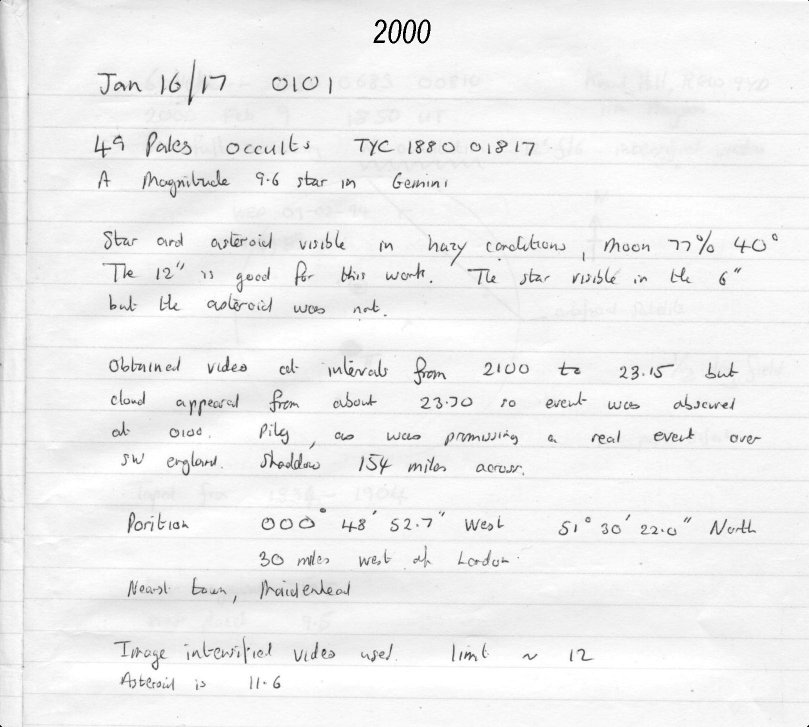 2000
Jan 16/17 0101
49 Pales occults TYC 1880 01817
A Magnitude 9.6 star in Gemini
Star and asteroid visible in hazy conditions, Moon 77% 40°
The 12" is good for this work. The star visible in the 6"
but the asteroid was not.
Obtained video at intervals from 2100 to 23.15 but
cloud appeared from about 23.30 so event was obscured
at 0100. Pity, as was promising a real event over
SW england. Shaddow 154 miles across.
Position 000° 48' 52.7" West 51° 30' 22.0" North
30 miles west of London.
Nearst town, Maidenhead
Image intensified video used. limit ~ 12
Asteroid is 11.6